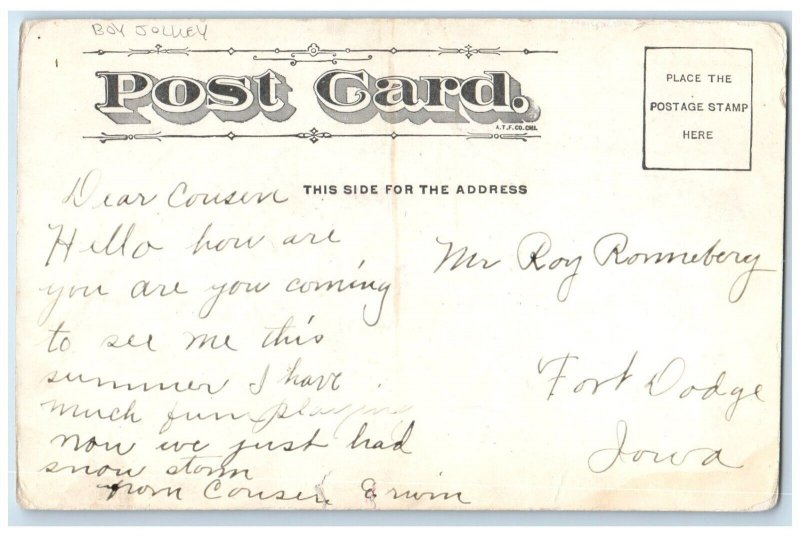 BOY JOLLEY
Post Card.
A.T.F.CO.CHI.
PLACE THE
POSTAGE STAMP
HERE
THIS SIDE FOR THE ADDRESS
Dear Cousen
Hello how are
you are you coming
to see me this
summer I have
much fun playing
now we just had
snow storm
from Cousen Erwin
Mr Roy Ronneberg
Fort Dodge
Iowa